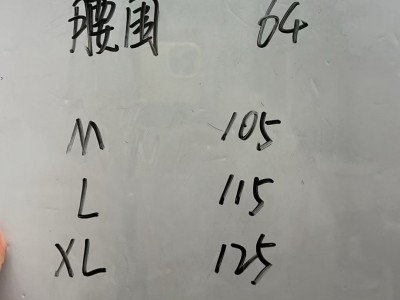 腰围 64
M 105
L 115
XL 125